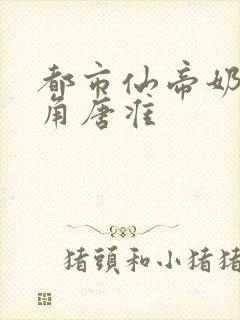 都市仙帝奶
角唐准
猪頭和小猪猪